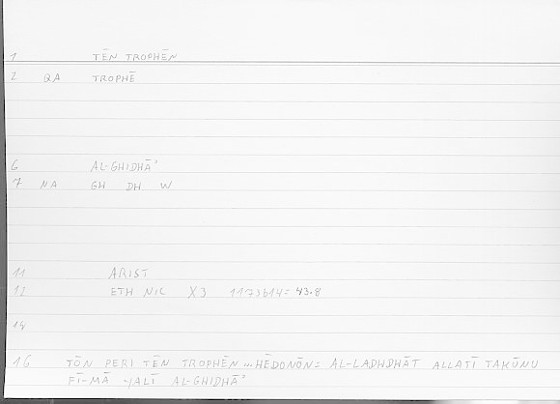 1 TĒN TROPHĒN
2 QA TROPHĒ
6 AL-GHIDHĀʾ
7 NA GH DH W
11 ARIST
12 ETH NIC X3 1173b14= 43.8
14
16 TŌN PERI TĒN TROPHĒN ... HĒDONŌN= AL-LADHDHĀT ALLATĪ TAKŪNU
FĪ-MĀ YALĪ AL-GHIDHĀʾ